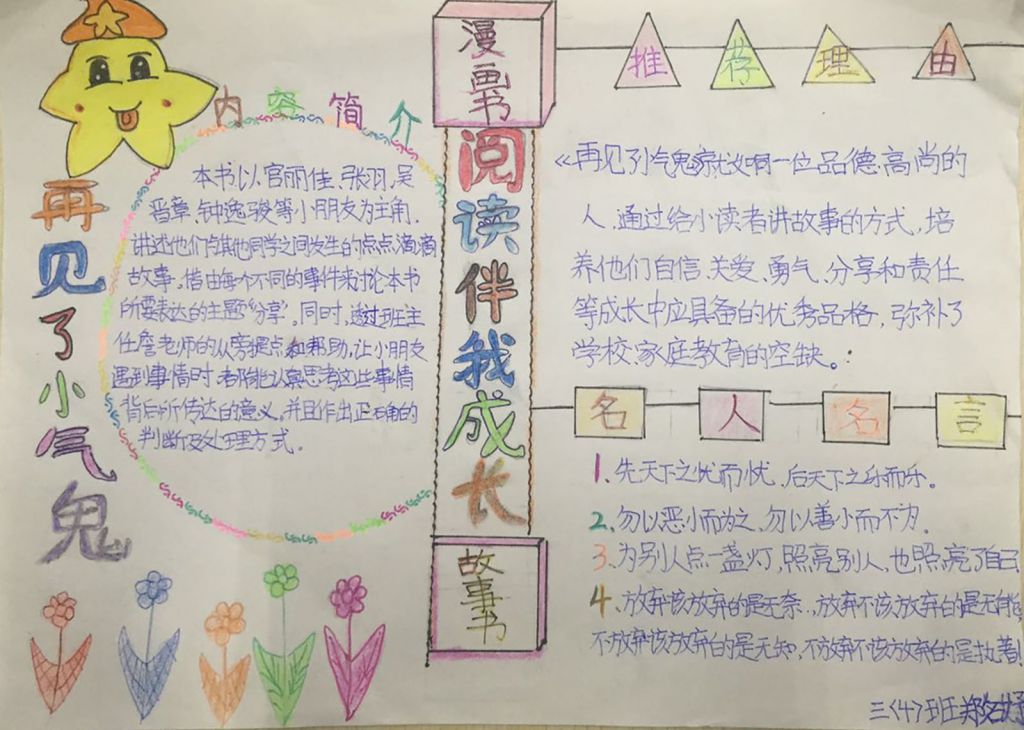 再见了小气鬼
内容简介
本书以官丽佳、张羽、吴
晋章、钟逸骏等小朋友为主角.
讲述他们与其他同学之间发生的点点滴滴
故事。借由每个不同的事件来讨论本书
所要表达的主题“分享”。同时,透过班主
任詹老师的从旁提点和帮助,让小朋友
遇到事情时,都能认真思考这些事情
背后所传达的意义,并且作出正确的
判断及处理方式.
漫画书
阅读伴我成长
故事书
推荐理由
《再见了小气鬼
一位品德高尚的
人,通过给小读者讲故事的方式,培
养他们自信、关爱、勇气、分享和责任
等成长中应具备的优秀品格,弥补了
学校家庭教育的空缺。
名人名言
1.先天下之忧而忧,后天下之乐而乐。
2.勿以恶小而为之,勿以善小而不为.
3.为别人点一盏灯,照亮别人,也照亮了自己
4.放弃该放弃的是无奈.放弃不该放弃的是无能
不放弃该放弃的是无知,不放弃不该放弃的是执著!
三〈4〉班郑